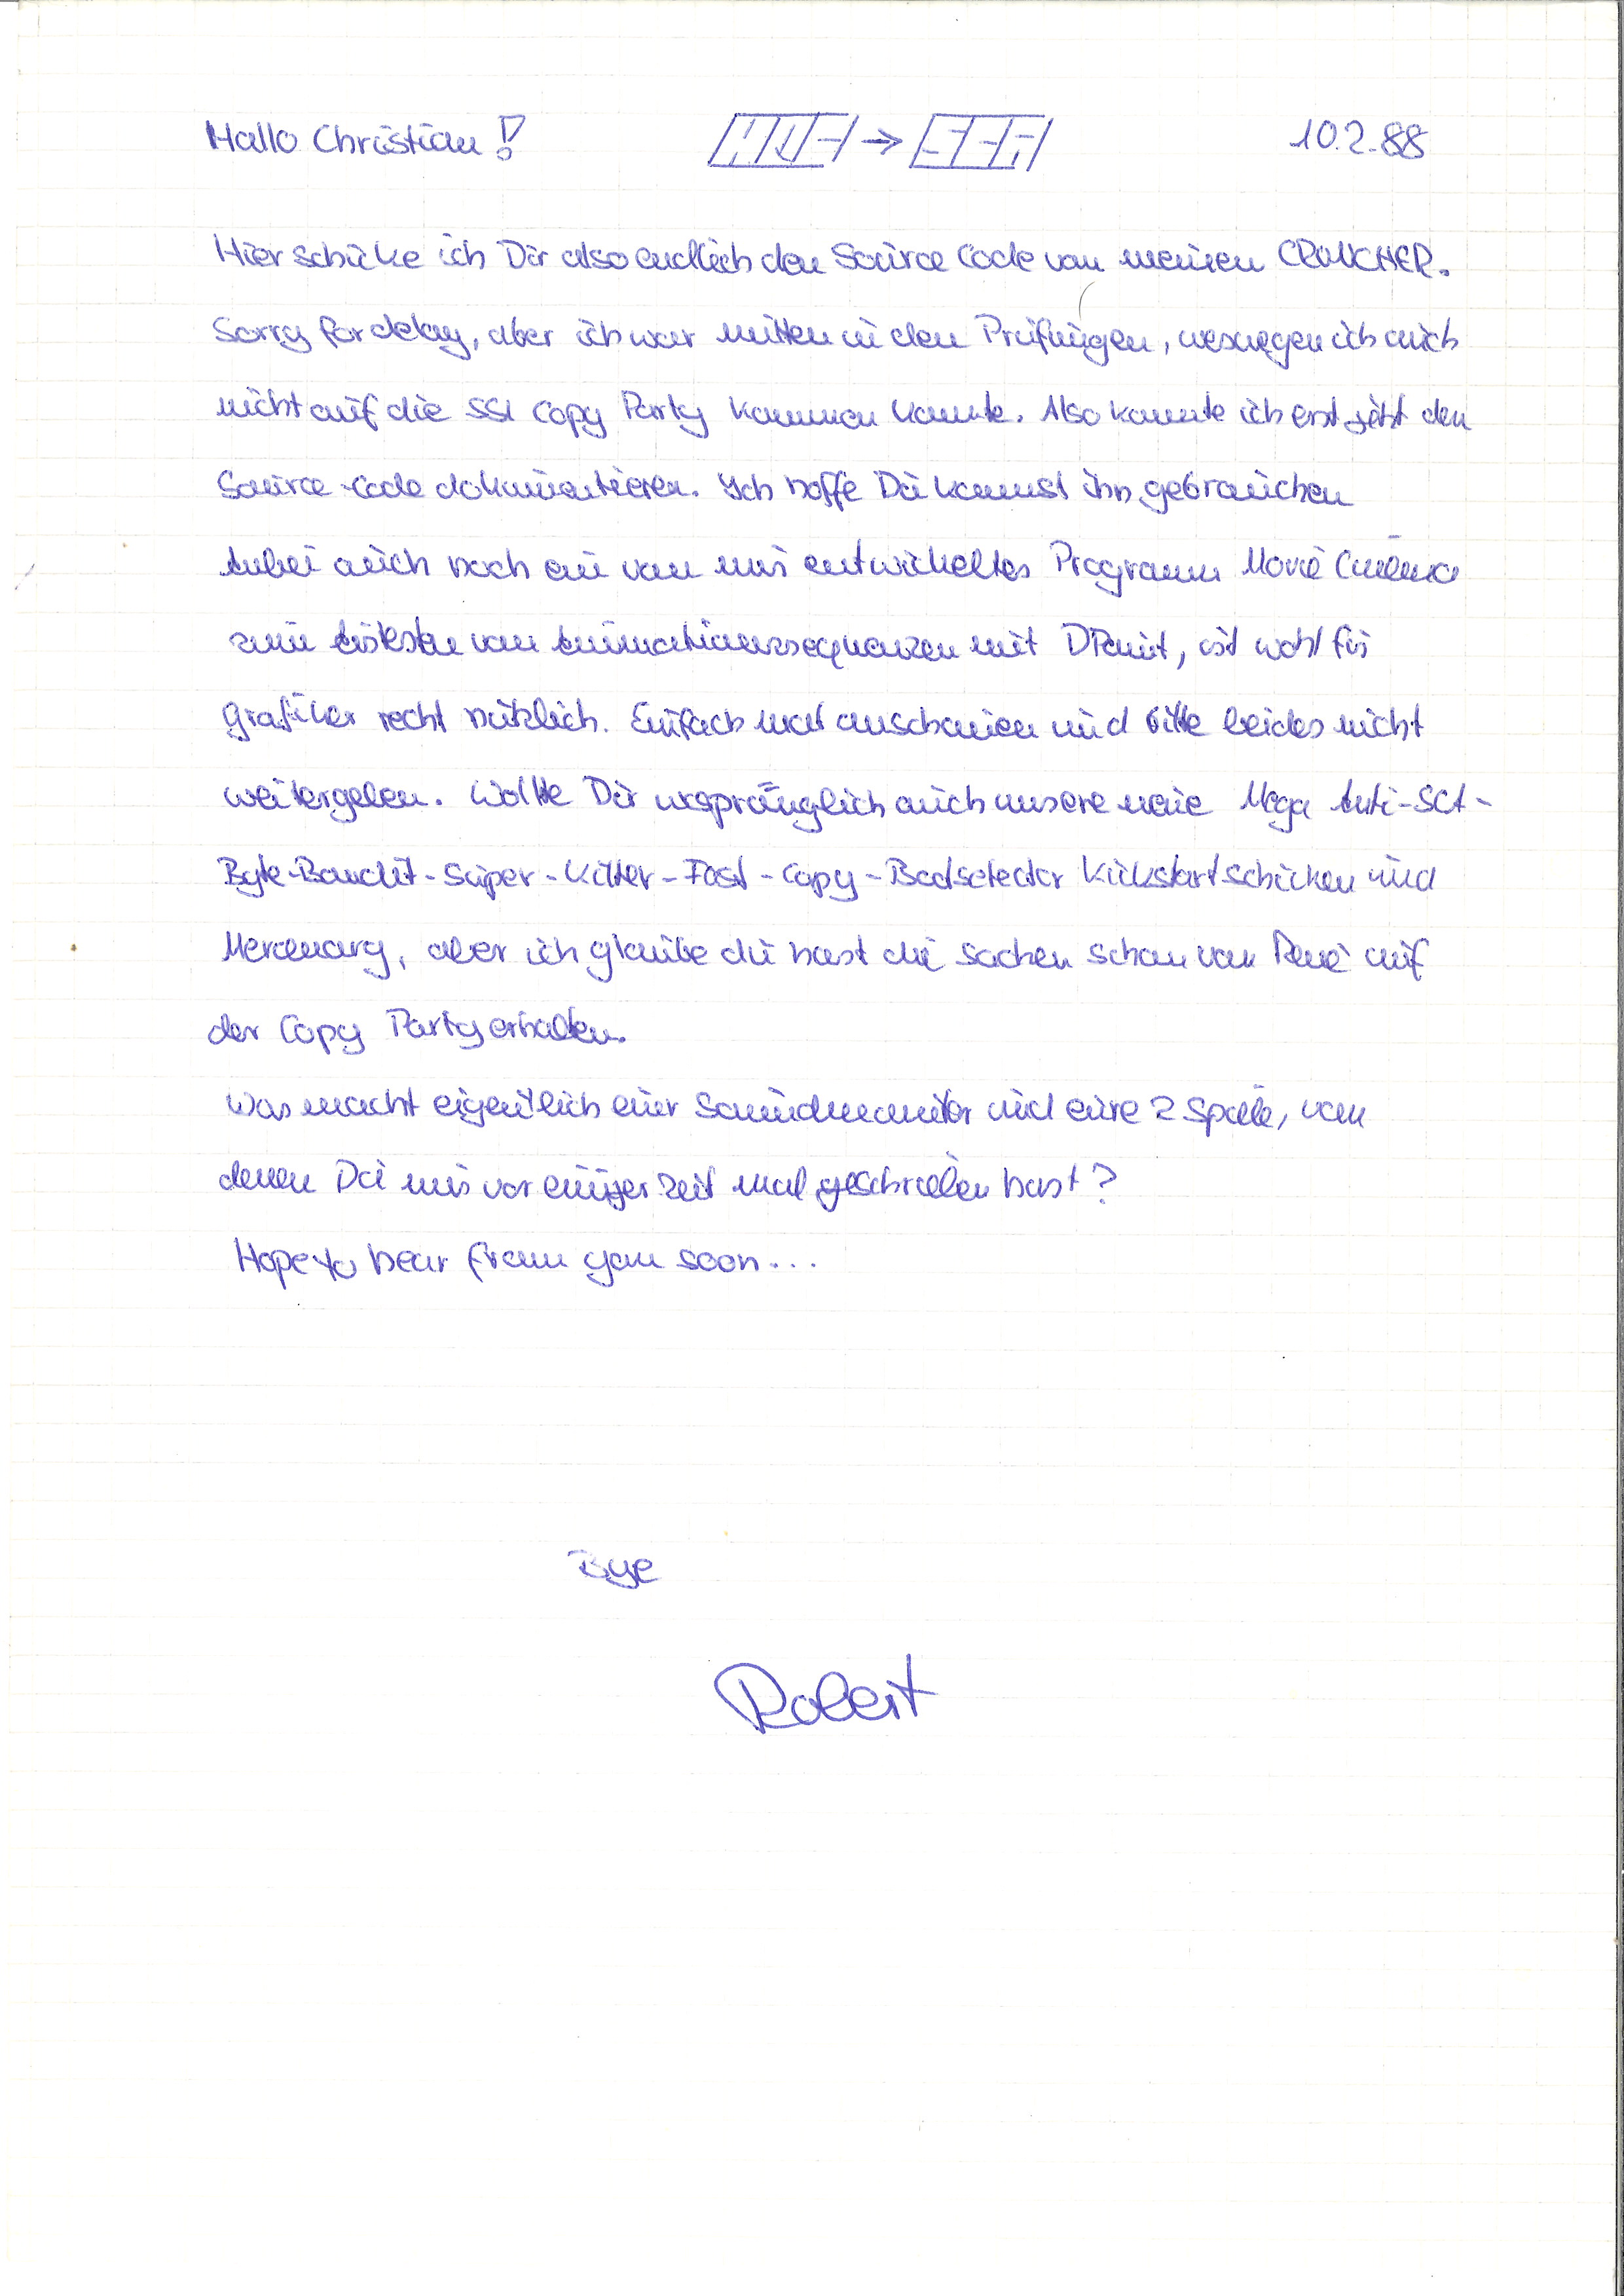 Hallo Christian! → 10.2.88
Hier schicke ich Dir also endlich den Source Code von meinen CRUNCHER.
Sorry for delay, aber ich war mitten in den Prüfungen, weswegen ich auch
nicht auf die SSI Copy Party kommen konnte. Also konnte ich erst jetzt den
Source-Code dokumentieren. Ich hoffe Du kannst ihn gebrauchen
Anbei auch noch ein von uns entwickeltes Programm Movie Cinema
zum Erstellen von Animationssequenzen mit DPaint, ist wohl für
Grafiker recht nützlich. Einfach mal anschauen und bitte beides nicht
weitergeben. Wollte Dir ursprünglich auch unsere neue Mega Anti-SCA-
Byte-Bandit-Super-Killer-Fast-Copy-Bootselector Kickstart schicken und
Mercenary, aber ich glaube du hast die Sachen schon von René auf
der Copy Party erhalten.
Was macht eigentlich euer Soundmonitor und eure 2 Spiele, von
denen Du uns vor einiger Zeit mal geschrieben hast?
Hope to hear from you soon...
Bye
Robert